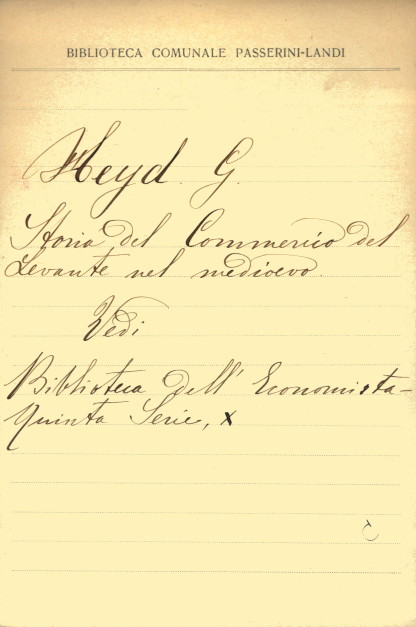 BIBLIOTECA COMUNALE PASSERINI-LANDI
Heyd. G.
Storia del Commercio del
Levante nel medioevo.
Vedi
Biblioteca dell' Economista-
Quinta Serie, X